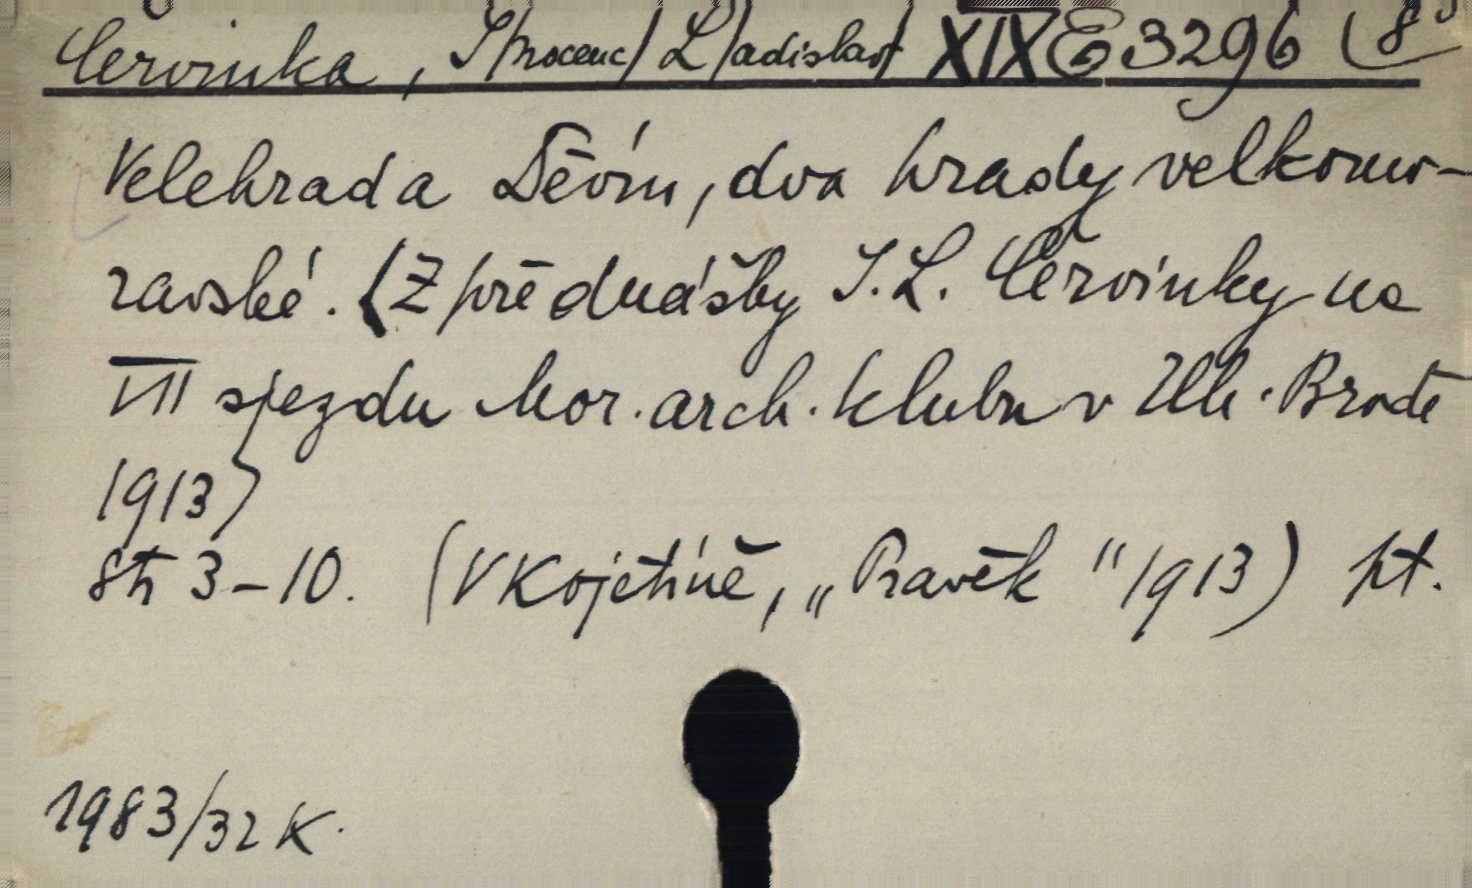 Červinka, I/nocenc/ L/adislav/ XIX E 3296 (8°
Velehrad a Děvín, dva hrady velkomo-
ravské. (Z přednášky I. L. Červinky na
VII sjezdu Mor. arch. klubu v Uh. Brodě
1913)
str 3-10. (V Kojetíně, „Pravěk" 1913) pt.
1983/32 K.